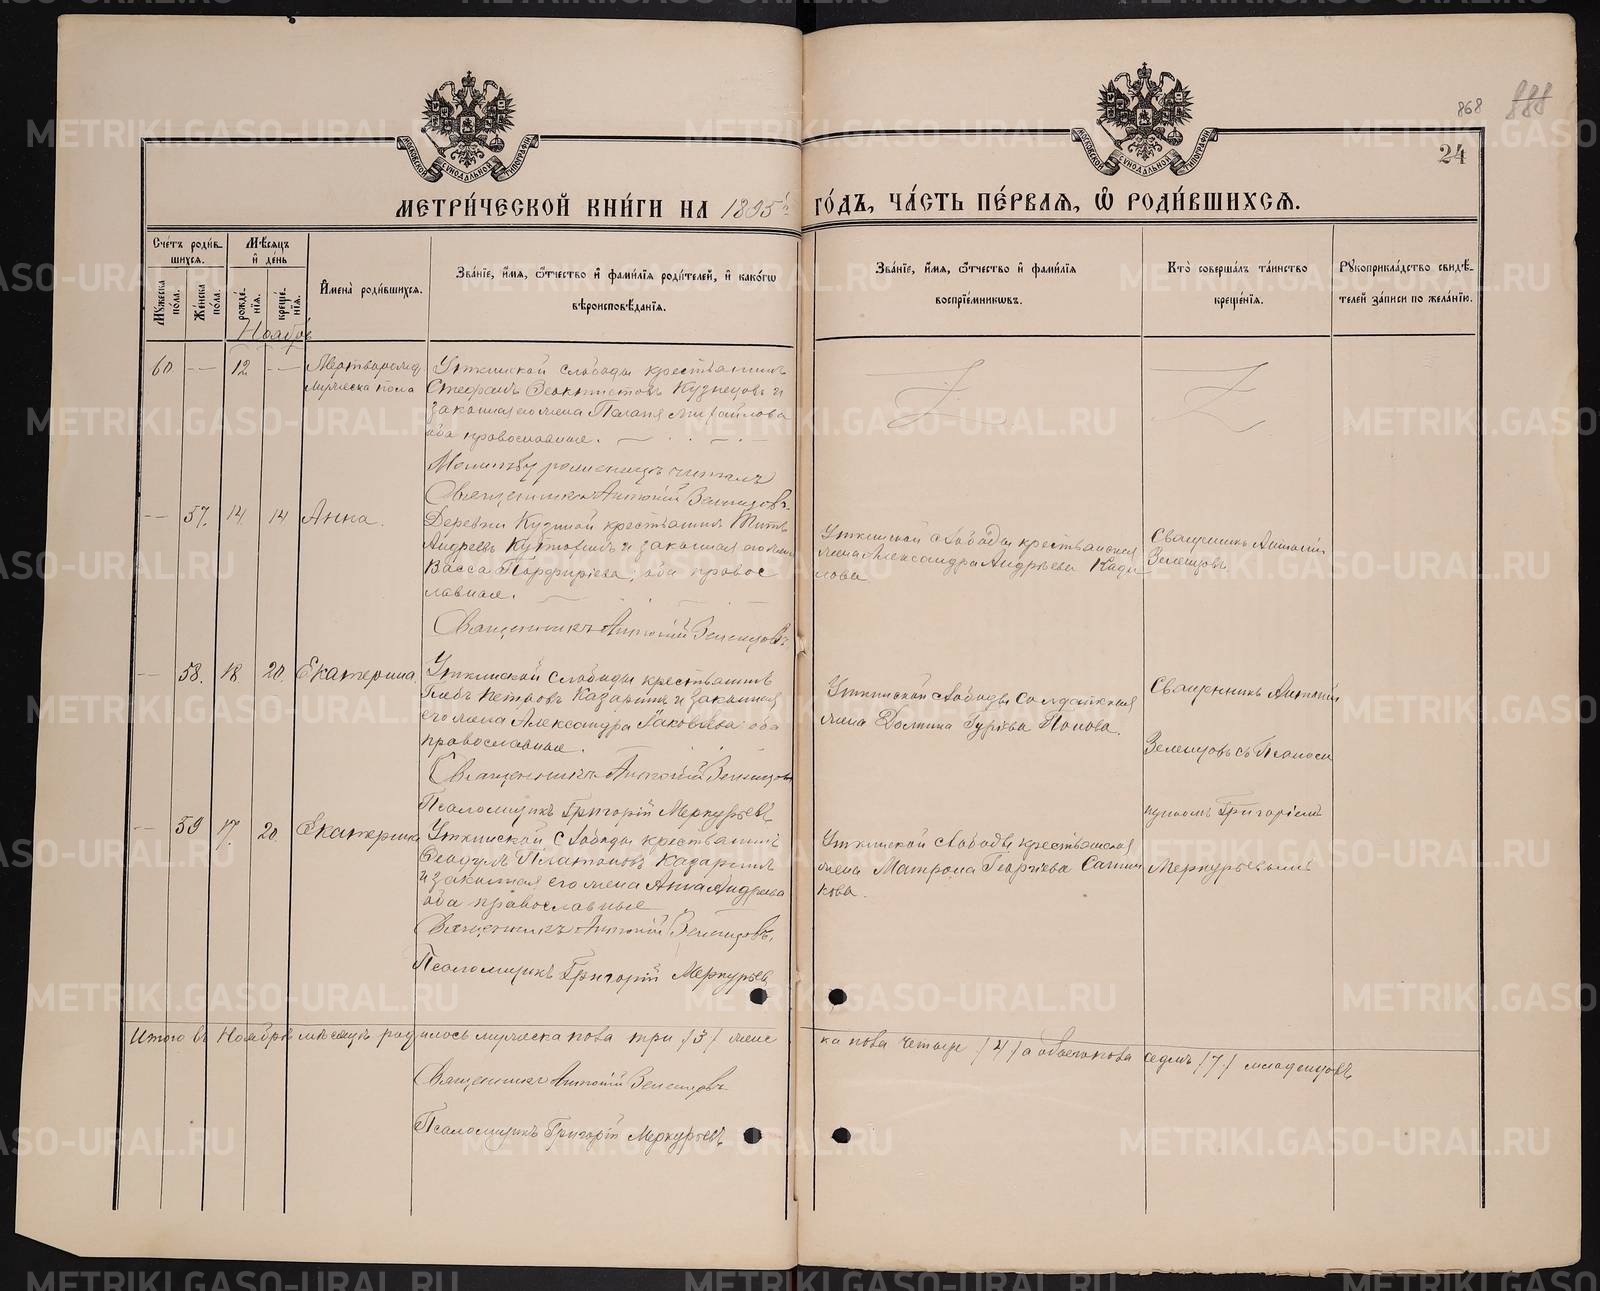 868 888
24
МОСКОВСКОЙ СУНОДАЛЬНОЙ ТИПОГРАФІИ
МОСКОВСКОЙ СУНОДАЛЬНОЙ ТИПОГРАФІИ
МЕТРИ́ЧЕСКОЙ КНИ́ГИ НА 1895й ГО́ДЪ, ЧА́СТЬ ПЕ́РВАѦ, Ѡ РОДИ́ВШИХСѦ.
Сче́тъ роди́в-
шихсѧ.
Мꙋжеска по́ла.
Же́нска по́ла.
Мѣ́сѧцъ
и҆ де́нь
рожде́нїѧ.
креще́нїѧ.
И҆мена̀ роди́вшихсѧ.
Зва́нїе, и҆́мѧ, ѻ҆́тчество и҆ фами́лїѧ роди́телей, и҆ како́гѡ
вѣроисповѣ́данїѧ.
Зва́нїе, и҆́мѧ, ѻ҆́тчество и҆ фами́лїѧ
воспрїе́мникѡвъ.
Кто̀ соверша́лъ та́инство
креще́нїѧ.
Рꙋкоприкла́дство свидѣ́-
телей за́писи по жела́нїю.
Ноябрь
60 — 12 — Мертворожд.
мужеска пола
Уткинской слободы крестьянинъ
Стефанъ Феоктистовъ Кузнецовъ и
законная его жена Пелагія Михайлова
оба православные.
Молитву родильницѣ читалъ
Священникъ Антоній Зеленцовъ.
— 57. 14 14 Анна.
Деревни Кузиной крестьянинъ Титъ
Андреевъ и законная его жена
Васса Порфиріева, оба правос
лавные.
Священникъ Антоній Зеленцовъ.
Уткинской слободы крестьянская
жена Александра Андреева
Священникъ Антоній
Зеленцовъ
— 58. 18. 20. Екатерина.
Уткинской слободы крестьянинъ
Глебъ Петровъ Казаринъ и законная
его жена Александра Іаковлева оба
православные.
Священникъ Антоній Зеленцовъ
Псаломщикъ Григорій Меркурьевъ
Уткинской слободы солдатская
жена Домнина Гурьева Попова.
Священникъ Антоній
Зеленцовъ съ Псалом
щикомъ Григоріемъ
Меркурьевымъ
— 59 17. 20. Екатерина
Уткинской слободы крестьянинъ
Платоновъ Казаринъ
и законная его жена Анна Андреева
оба православные
Священникъ Антоній Зеленцовъ.
Псаломщикъ Григорій Меркурьевъ
Уткинской слободы крестьянская
жена Матрона Георгіева
кова.
Итого въ Ноябрѣ мѣсяцѣ родилось мужеска пола три /3/ женс
ка пола четыре /4/ а обоего пола седмь /7/ младенцовъ
Священникъ Антоній Зеленцовъ
Псаломщикъ Григорій Меркурьевъ
METRIKI.GASO-URAL.RU